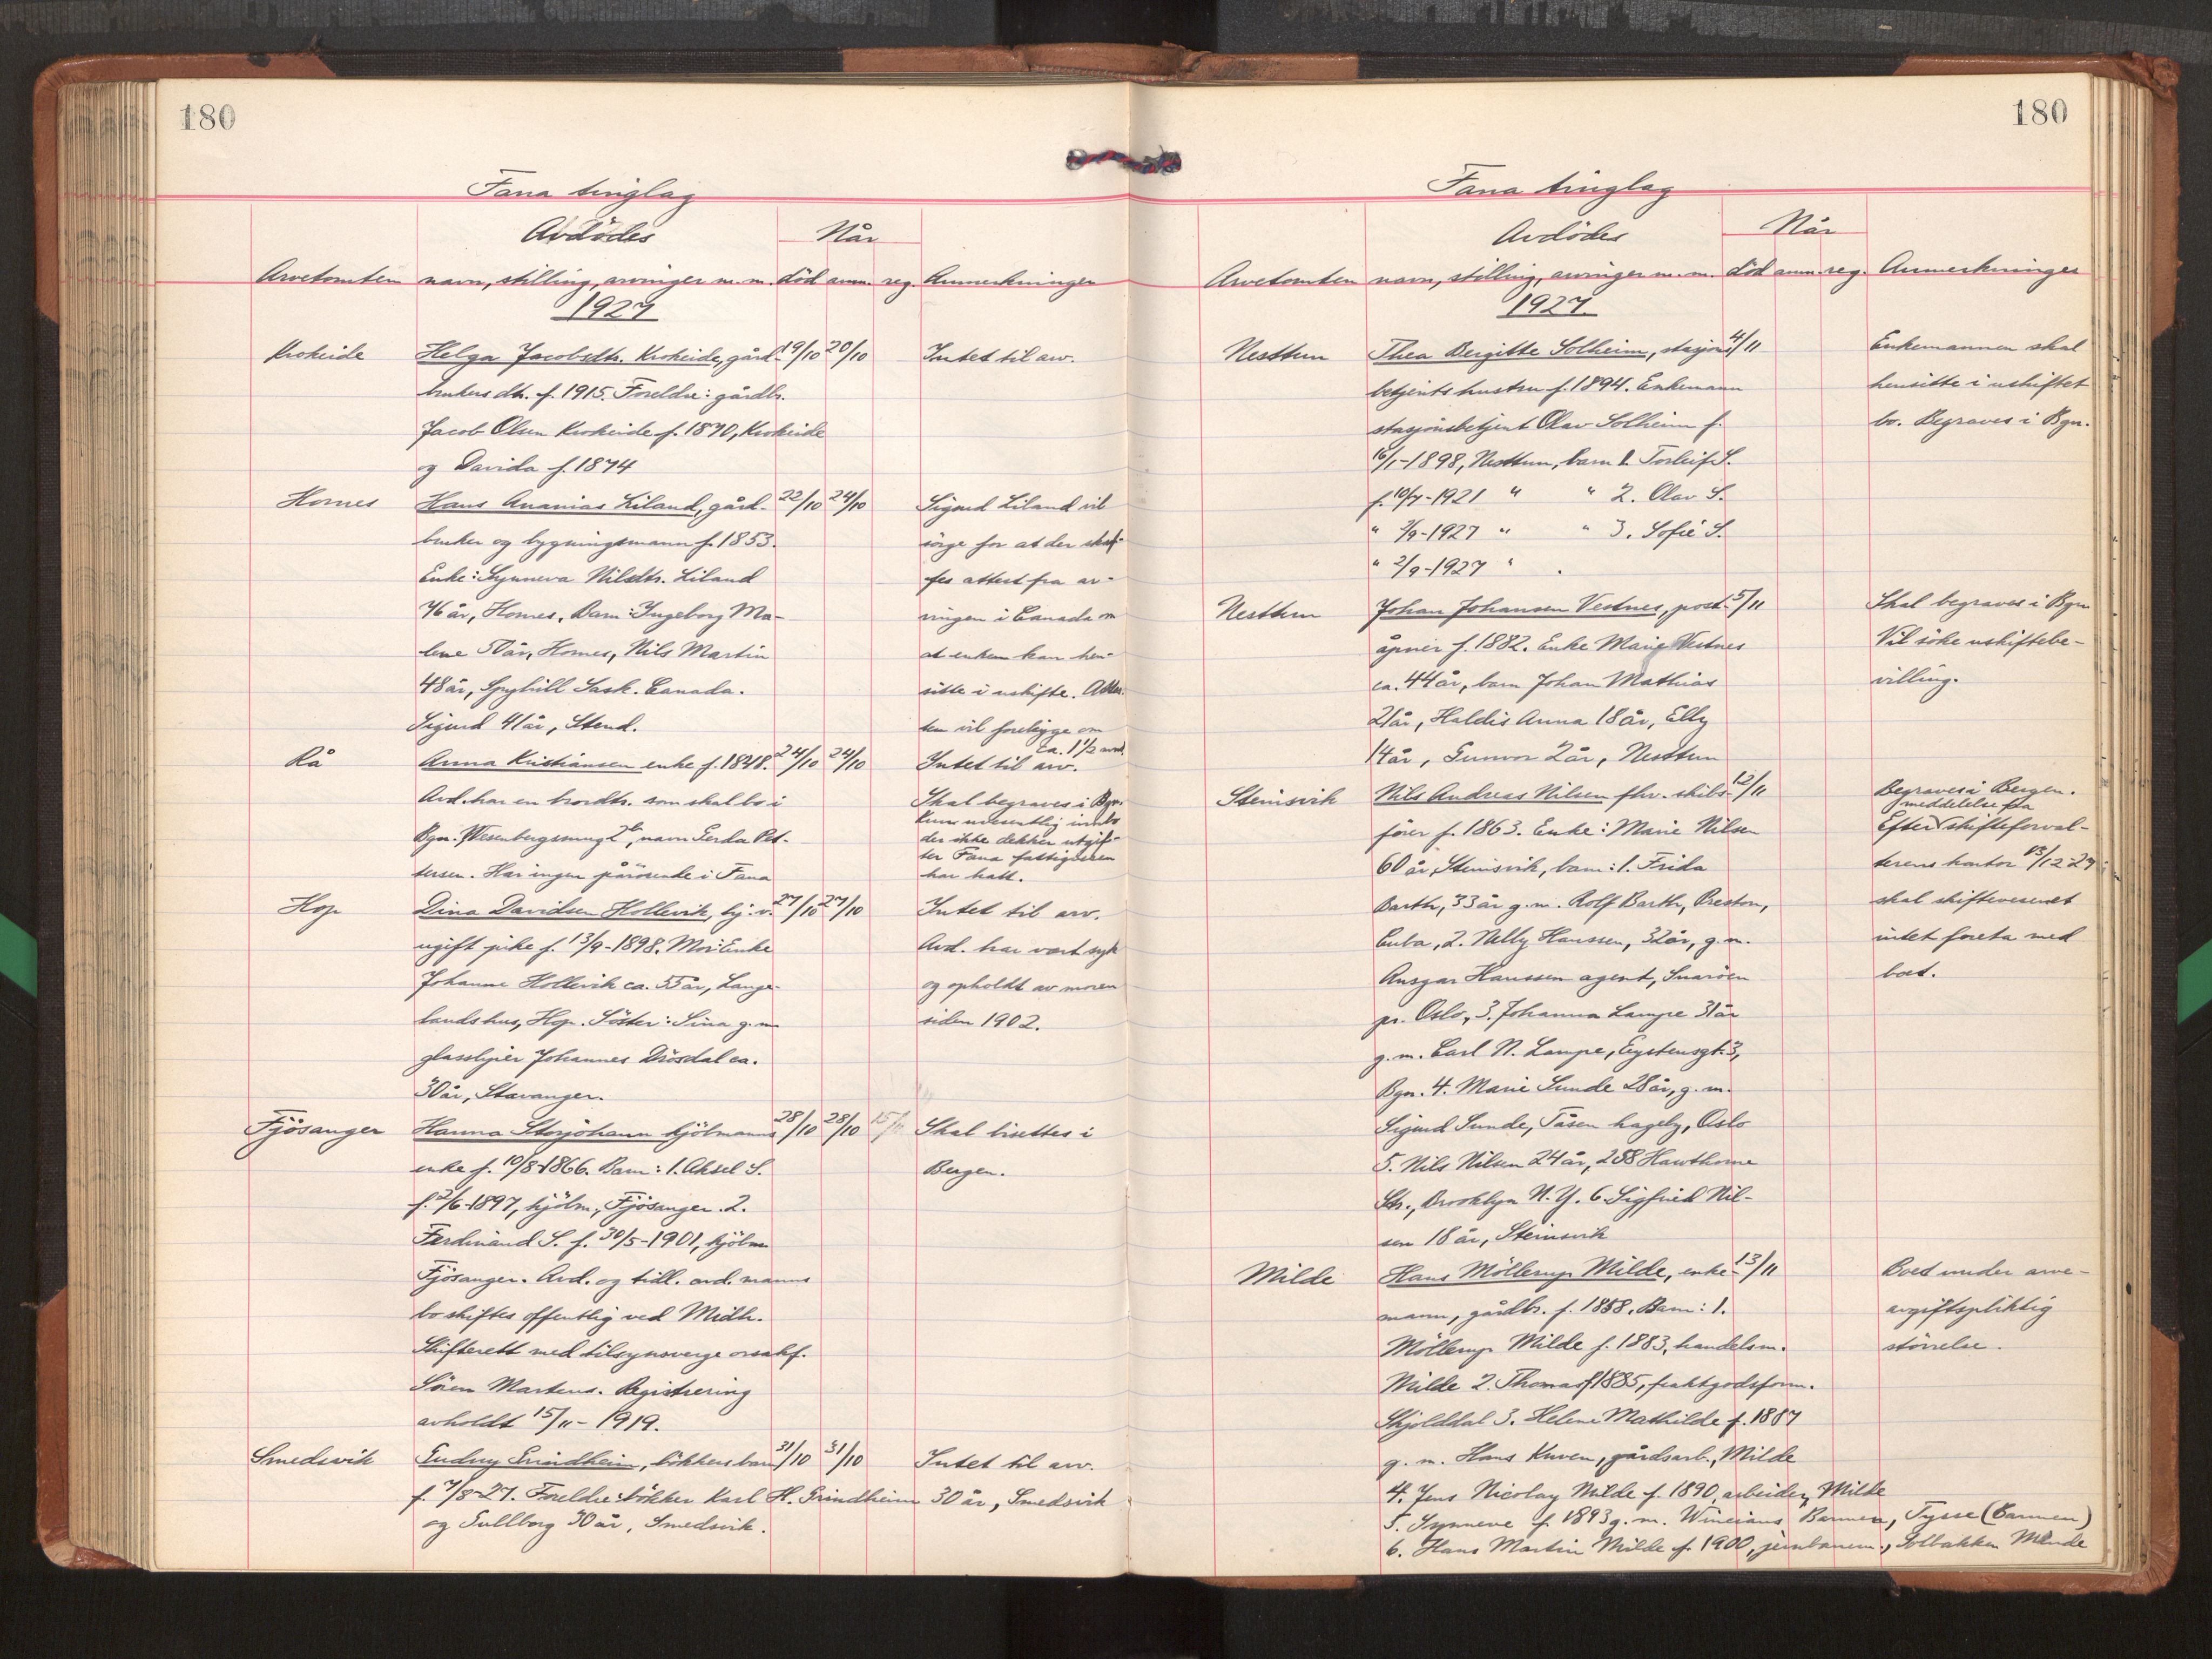 180
Fana tinglag
Avdödes Når
Arvetomten navn, stilling, arvinger m. m. död anm. reg. Anmerkninger
1927
Krokeide Helga Jacobsdtr. Krokeide, gård- 19/10 20/10 Intet til arv.
brukers dtr. f. 1915. Foreldre: gårdbr.
Jacob Olsen Krokeide f. 1870, Krokeide
og Davida f. 1874
Homes Hans Ananias Liland, gård- 22/10 24/10 Sigurd Liland vil
bruker og bygningsmann f. 1853. sörge for at der skaf-
Enke: Synneva Nilsdtr. Liland fes attest fra ar-
76 år, Homes. Barn: Ingeborg Ma- vingen i Canada om
lene 50 år, Homes, Nils Martin at enken kan hen-
48 år, Spyhill Sask. Canada. sitte i uskifte. Attes-
Sigurd 41 år, Stend. ten vil foreligge om
ca. 1 1/2 mnd.
Rå Anna Kristiansen enke f. 1848. 24/10 24/10 Intet til arv.
Avd. har en brordtr. som skal bo i Skal begraves i Bgn.
Kun uvesentlig innbo
Bgn. Wesenbergsmug 2b, navn Gerda Pet- der ikke dekker utgif-
ter Fana fattigvesen
tersen. Har ingen pårörende i Fana har hatt.
Hop Dina Davidsen Hollevik, hj. v. 27/10 27/10 Intet til arv.
ugift pike f. 13/9-1898. Mor: Enke Avd. har vært syk
Johanne Hollevik ca. 55 år, Lange- og opholdt av moren
landshus, Hop. Söster: Sina g. m. siden 1902.
glassliper Johannes Drösdal ca.
30 år, Stavanger.
Fjösanger Hanna Storjohann kjölmanns 28/10 28/10 15/11 Skal bisettes i
enke f. 10/8-1866. Barn: 1. Aksel S. Bergen.
f. 2/6-1897, kjölm, Fjösanger. 2.
Ferdinand S. f. 30/5-1901, kjölm
Fjösanger. Avd. og tidl. avd. manns
bo skiftes offentlig ved Midh.
Skifterett med tilsynsverge orsakf.
Sören Martens. Registrering
avholdt 15/11-1919.
Smedsvik Gudny Grindheim, bökkers barn 31/10 31/10 Intet til arv.
f. 7/8-27. Foreldre: bökker Karl H. Grindheim 30 år, Smedsvik
og Gullborg 30 år, Smedsvik.
180
Fana tinglag
Avdödes Når
Arvetomten navn, stilling, arvinger m. m. död anm. reg. Anmerkninger
1927
Nesttun Thea Bergitte Solheim, stasjons- 4/11 Enkemannen skal
betjents hustru f. 1894. Enkemann hensitte i uskiftet
stasjonsbetjent Olav Solheim f. bo. Begraves i Bgn.
16/1-1898, Nesttun, barn 1. Torleif S.
f. 10/7-1921 " " 2. Olav S.
" 2/9-1927 " " 3. Sofie S.
" 2/9-1927 " .
Nesttun Johan Johansen Vestnes, post- 5/11 Skal begraves i Bgn
åpner f. 1882. Enke Marie Vestnes Vil söke uskiftebe-
ca. 44 år, barn Johan Mathias villing.
21 år, Haldis Anna 18 år, Elly
14 år, Gunvor 2 år, Nesttun
Steinsvik Nils Andreas Nilsen fhv. skibs- 12/11 Begraves i Bergen.
meddelelse fra
förer f. 1863. Enke: Marie Nilsen Efter skifteforval-
60 år, Steinsvik, barn: 1. Frida terens kontor 13/12 27
Barth, 33 år g. m. Rolf Barth, Preston, skal skiftevesenet
Cuba, 2. Nelly Hanssen, 32 år, g. m. intet foreta med
Ansgar Hanssen agent, Snaröen boet.
pr. Oslo, 3. Johanna Lampe 31 år
g. m. Carl N. Lampe, Eystensgt. 3,
Bgn. 4. Marie Sunde 28 år, g. m.
Sigurd Sunde, Tåsen hageby, Oslo
5. Nils Nilsen 24 år, 258 Hawthorne
Str., Brooklyn N. Y. 6. Sigfried Nil-
sen 18 år, Steinsvik
Milde Hans Möllerup Milde, enke- 13/11 Boet under arve-
mann, gårdbr. f. 1858. Barn: 1. avgiftspliktig
Möllerup Milde f. 1883, handelsm. störrelse.
Milde 2. Thomas f. 1885, fraktgodsform.
Skjolddal 3. Helene Mathilde f. 1887
g. m. Hans Kuven, gårdsarb., Milde
4. Jens Nicolay Milde f. 1890, arbeider, Milde
5. Synneve f. 1893 g. m. Barmen, Tysse (Barmen)
6. Hans Martin Milde f. 1900, jernbanem., Solbakken Minde